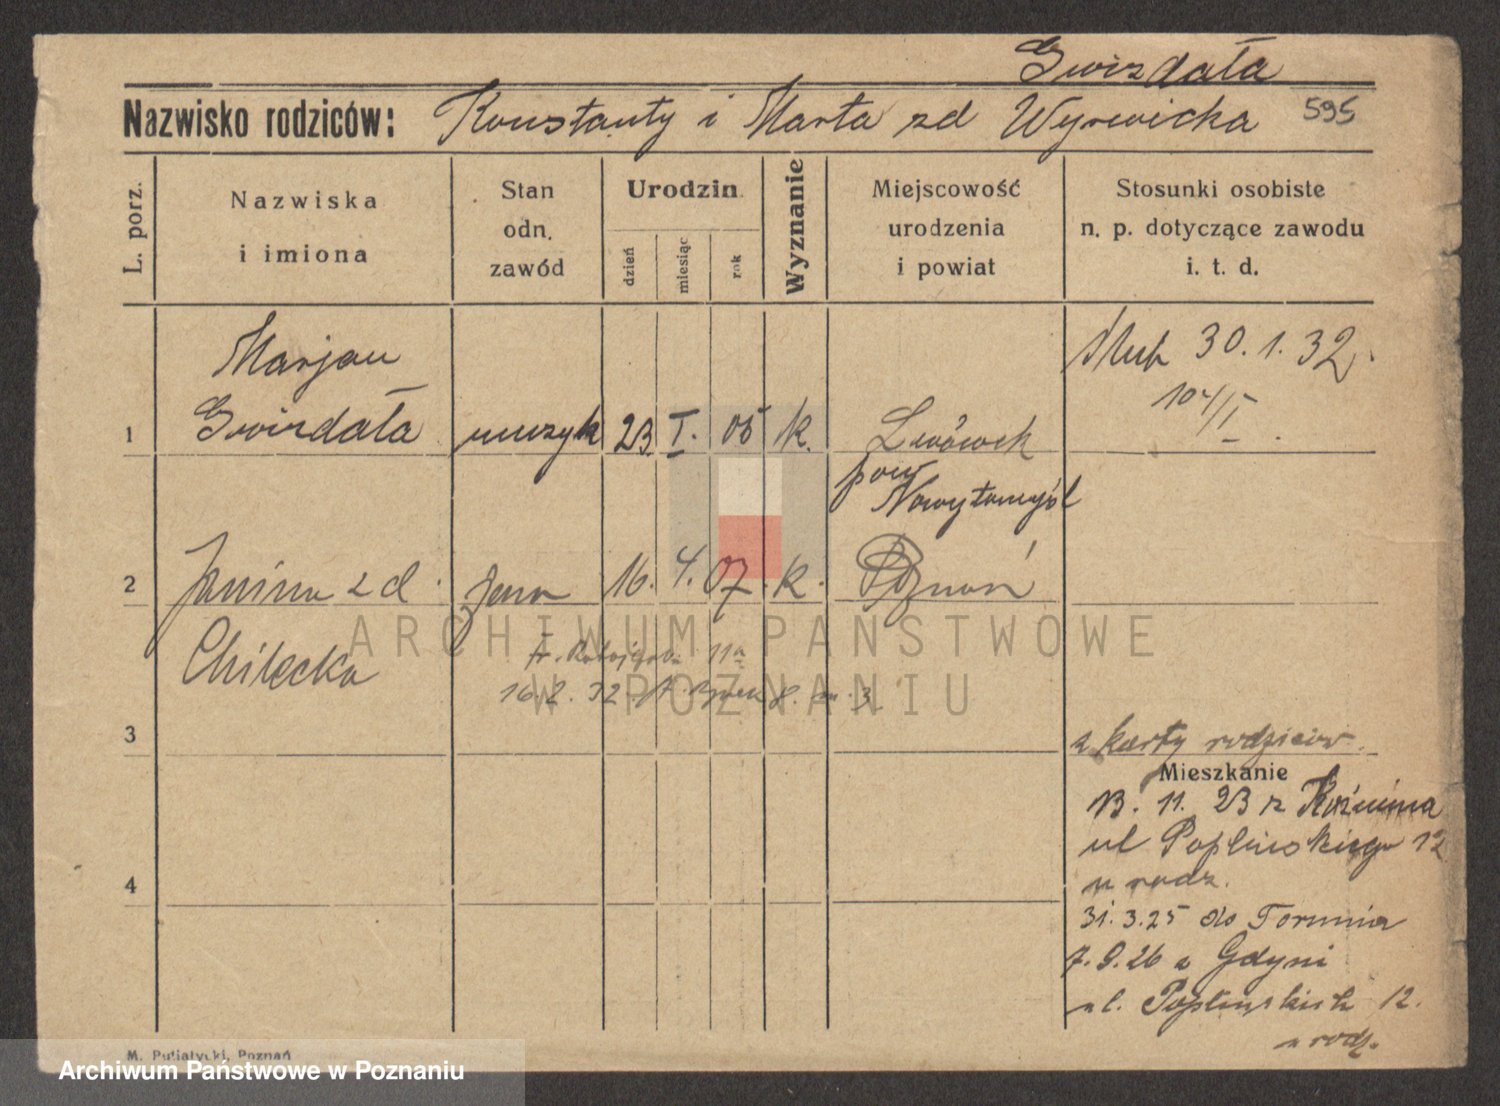 Gwizdała
Nazwisko rodziców: Konstanty i Marta zd Wyrwicka 595
L. porz.
Nazwiska
i imiona
Stan
odn.
zawód
Urodzin
dzień
miesiąc
rok
Wyznanie
Miejscowość
urodzenia
i powiat
Stosunki osobiste
n. p. dotyczące zawodu
i. t. d.
Marjan ślub 30.1.32
104/I
1 Gwizdała muzyk 23. I. 05 k. Lwówek
pow
Nowytomyśl
2 Janina zd. żona 16. 4. 07. k. Poznań
Chilecka
11a
16.2.32 8. m. 3
3
z karty rodziców
Mieszkanie
13. 11. 23 z Koźmina
ul Poplińskiego 12
u rodz.
4
31.3.25 do Torunia
7.9.26 z Gdyni
ul. Poplińskich 12.
u rodz.
M. Putiatycki, Poznań
ARCHIWUM PAŃSTWOWE
W POZNANIU
Archiwum Państwowe w Poznaniu